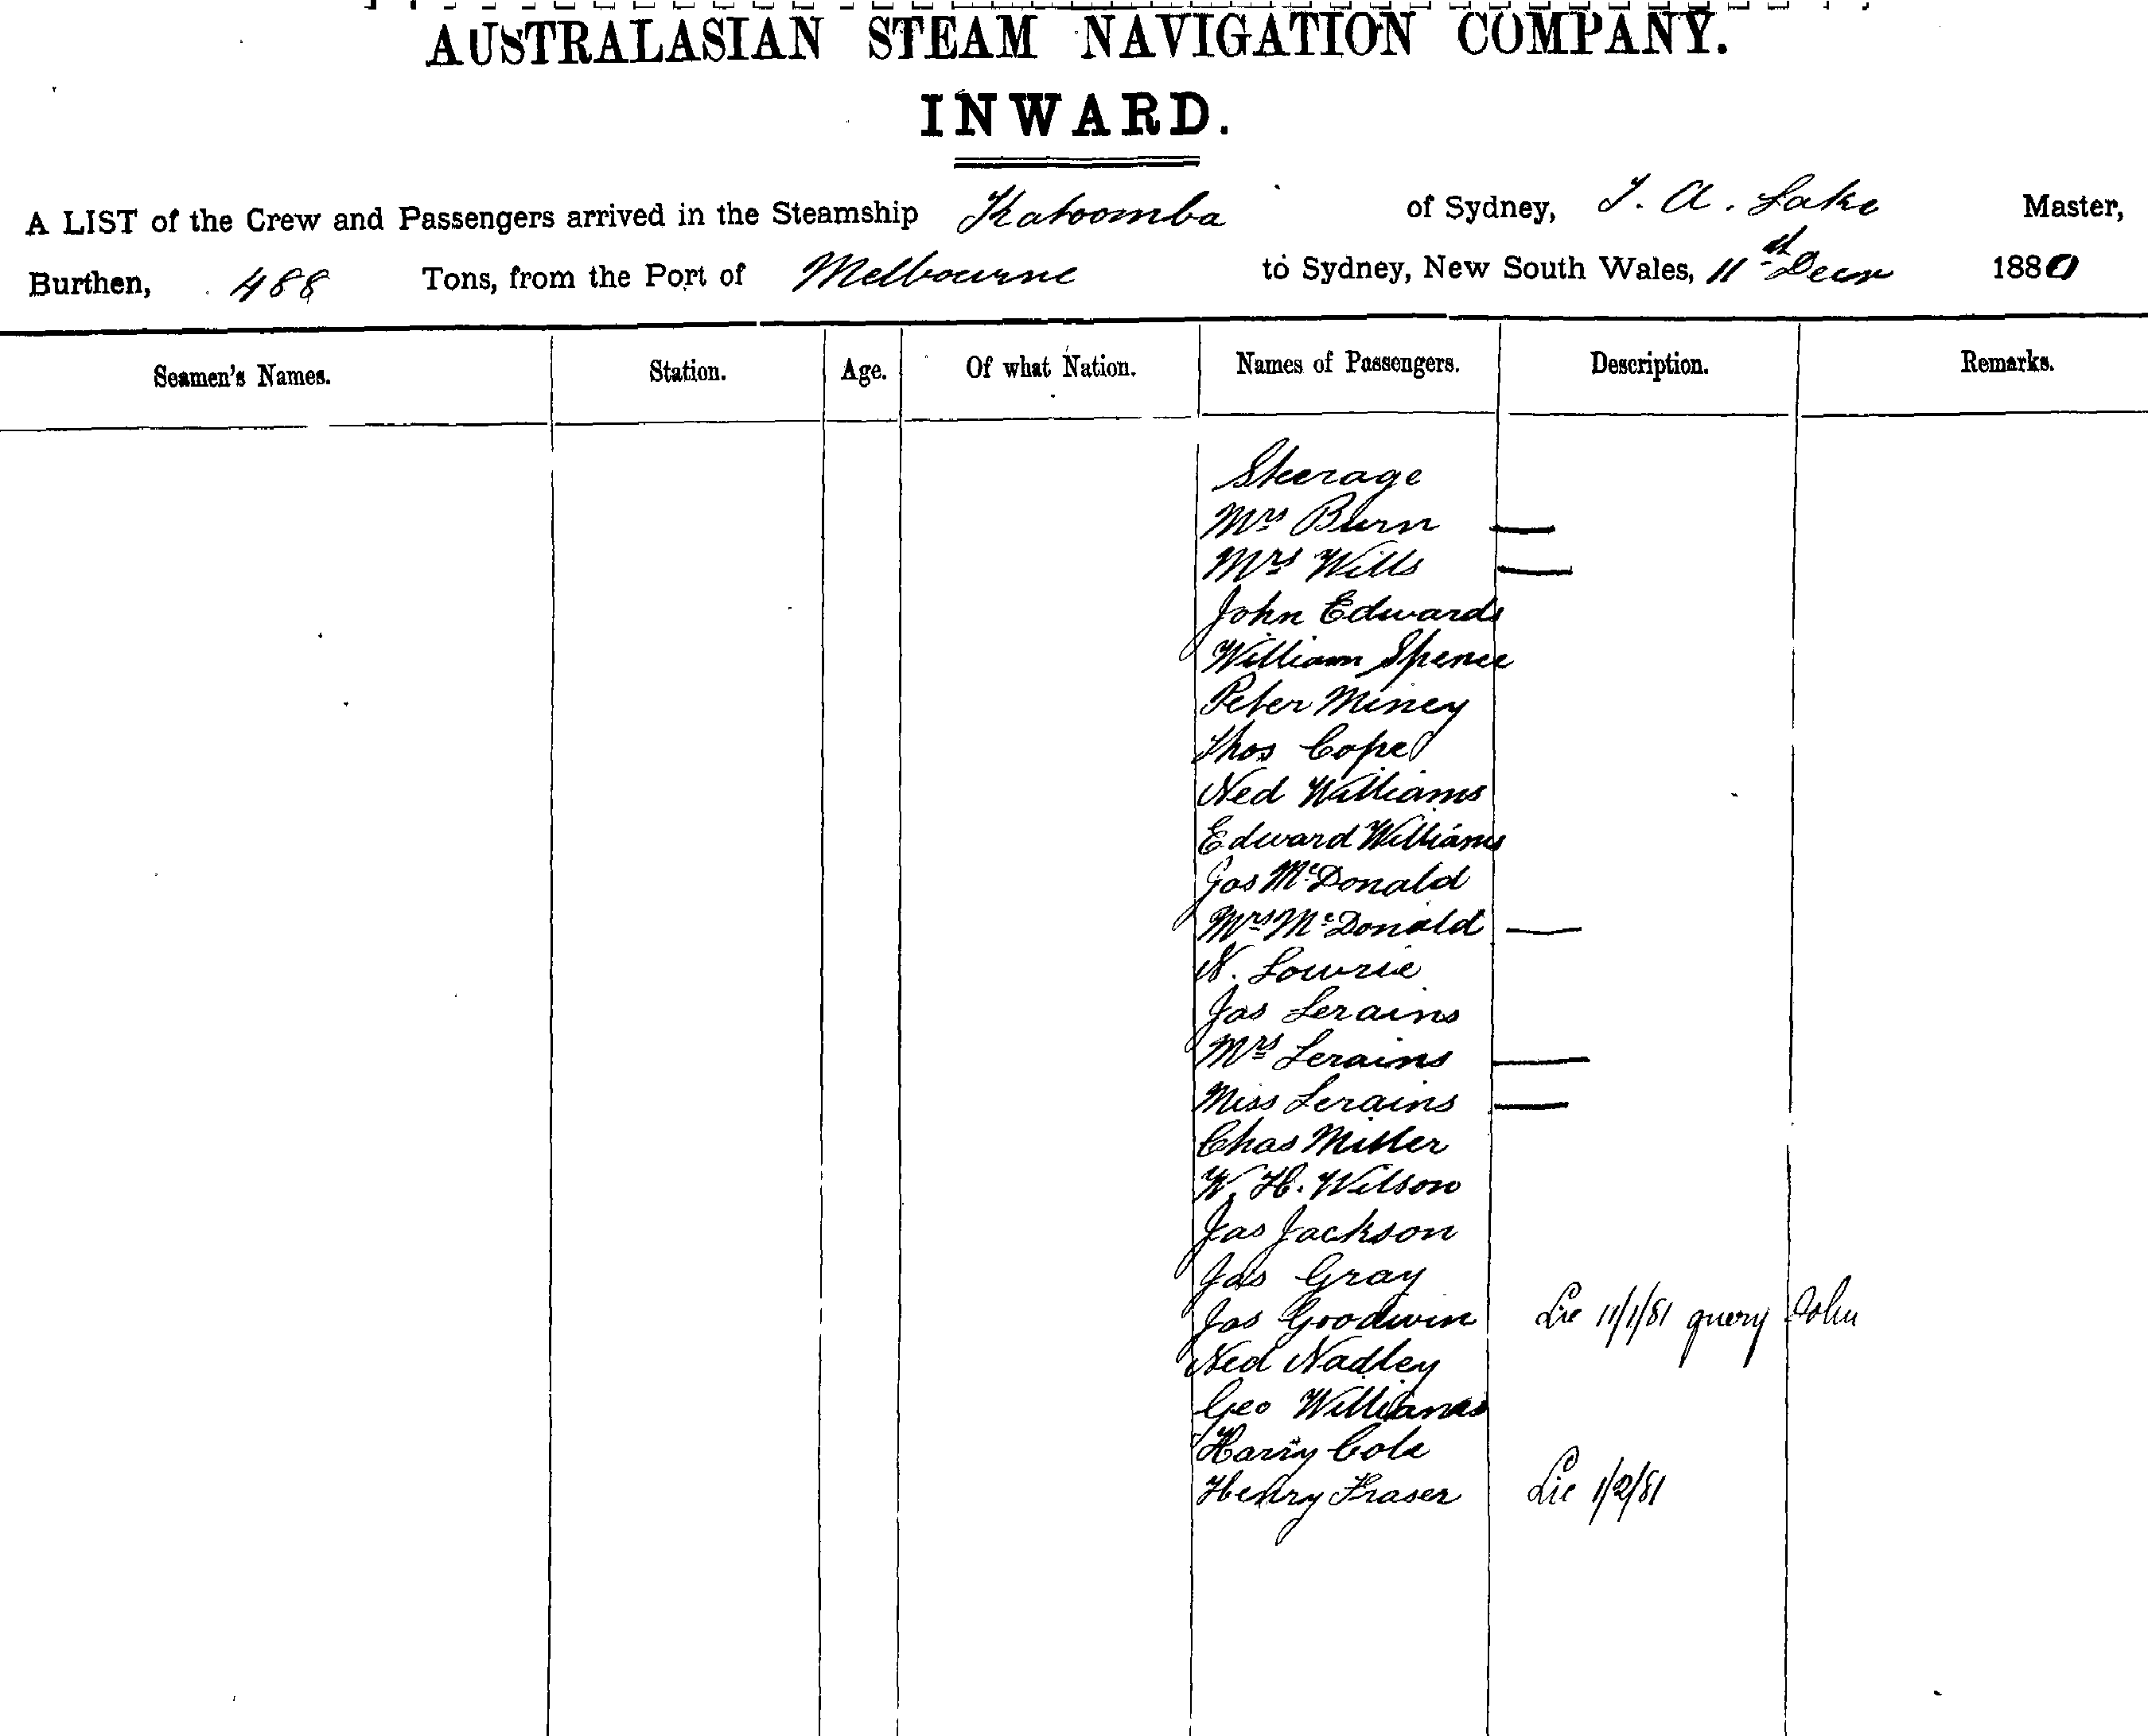 AUSTRALASIAN STEAM NAVIGATION COMPANY.
INWARD.
A LIST of the Crew and Passengers arrived in the Steamship Katoomba of Sydney, T. A. Lake Master,
Burthen, 488 Tons, from the Port of Melbourne to Sydney, New South Wales, 11th Decr 1880
Seamen's Names. Station. Age. Of what Nation. Names of Passengers. Description. Remarks.
Steerage
Mrs Burn —
Mrs Wills —
John Edwards
William Spence
Peter Miney
Thos Cope
Ned Williams
Edward Williams
Jas McDonald
Mrs McDonald —
N. Lowrie
Jas Lerains
Mrs Lerains —
Miss Lerains —
Chas Miller
W. H. Wilson
Jas Jackson
Jas Gray
Jas Goodwin Lie 11/1/81 query John
Ned Nadley
Geo Williams
Harry Cole
Henry Fraser Lie 1/2/81